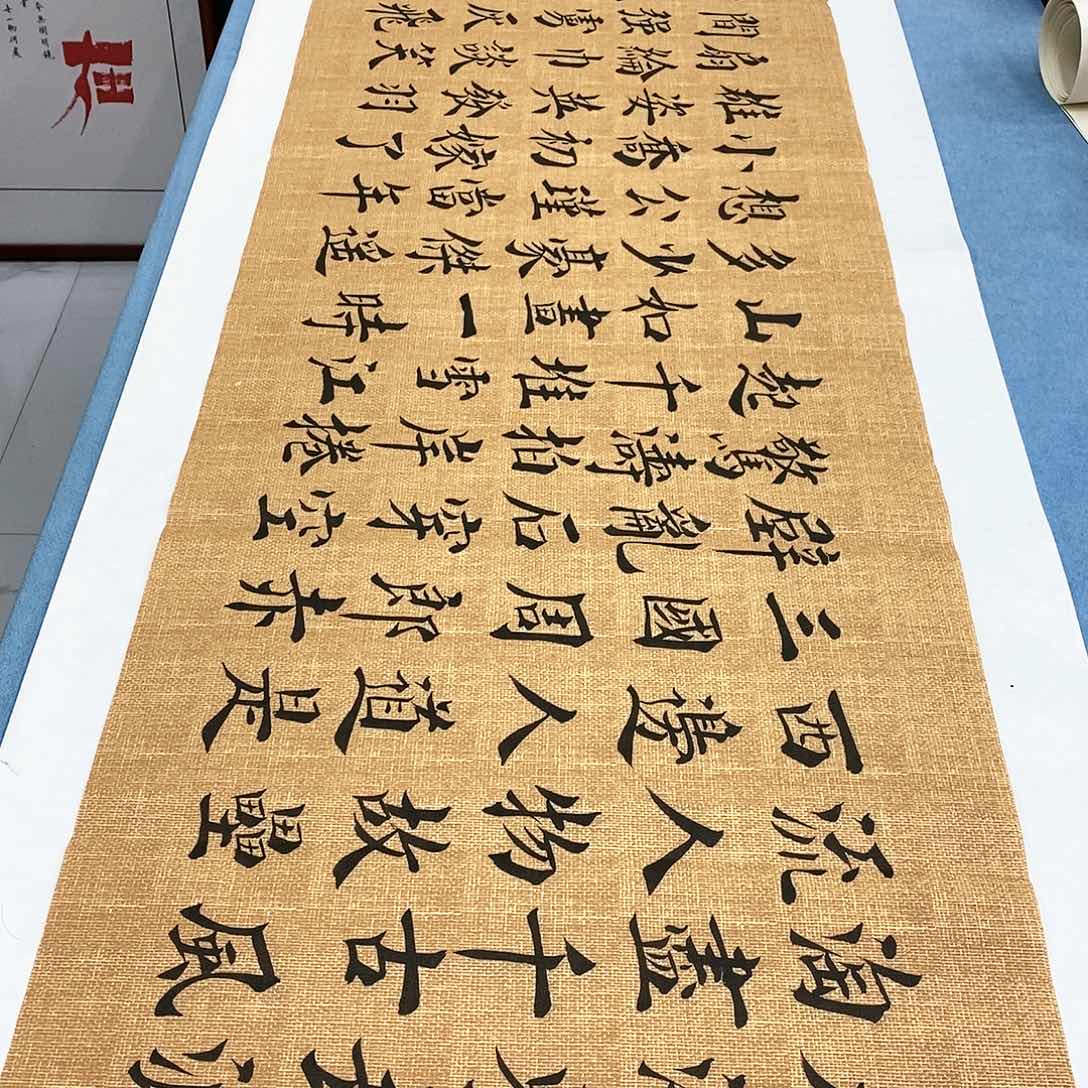 淘盡千古風
流人物故壘
西邊人道是
三國周郎赤
壁亂石穿空
驚濤拍岸捲
起千堆雪江
山如畫一時
多少豪傑遙
想公瑾當年
小喬初嫁了
雄姿英發羽
扇綸巾談笑
間强虜灰飛